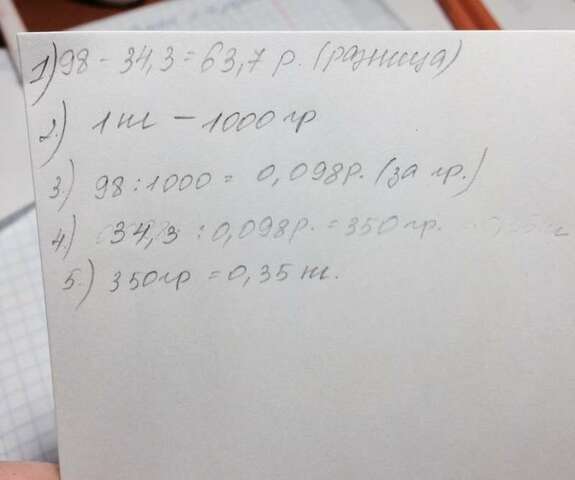 1) 98 - 34,3 = 63,7 р. (разница)
2.) 1 т - 1000 гр
3.) 98 : 1000 = 0,098 р. (за гр.)
4.) 34,3 : 0,098 р. = 350 гр.
5.) 350 гр = 0,35 т.